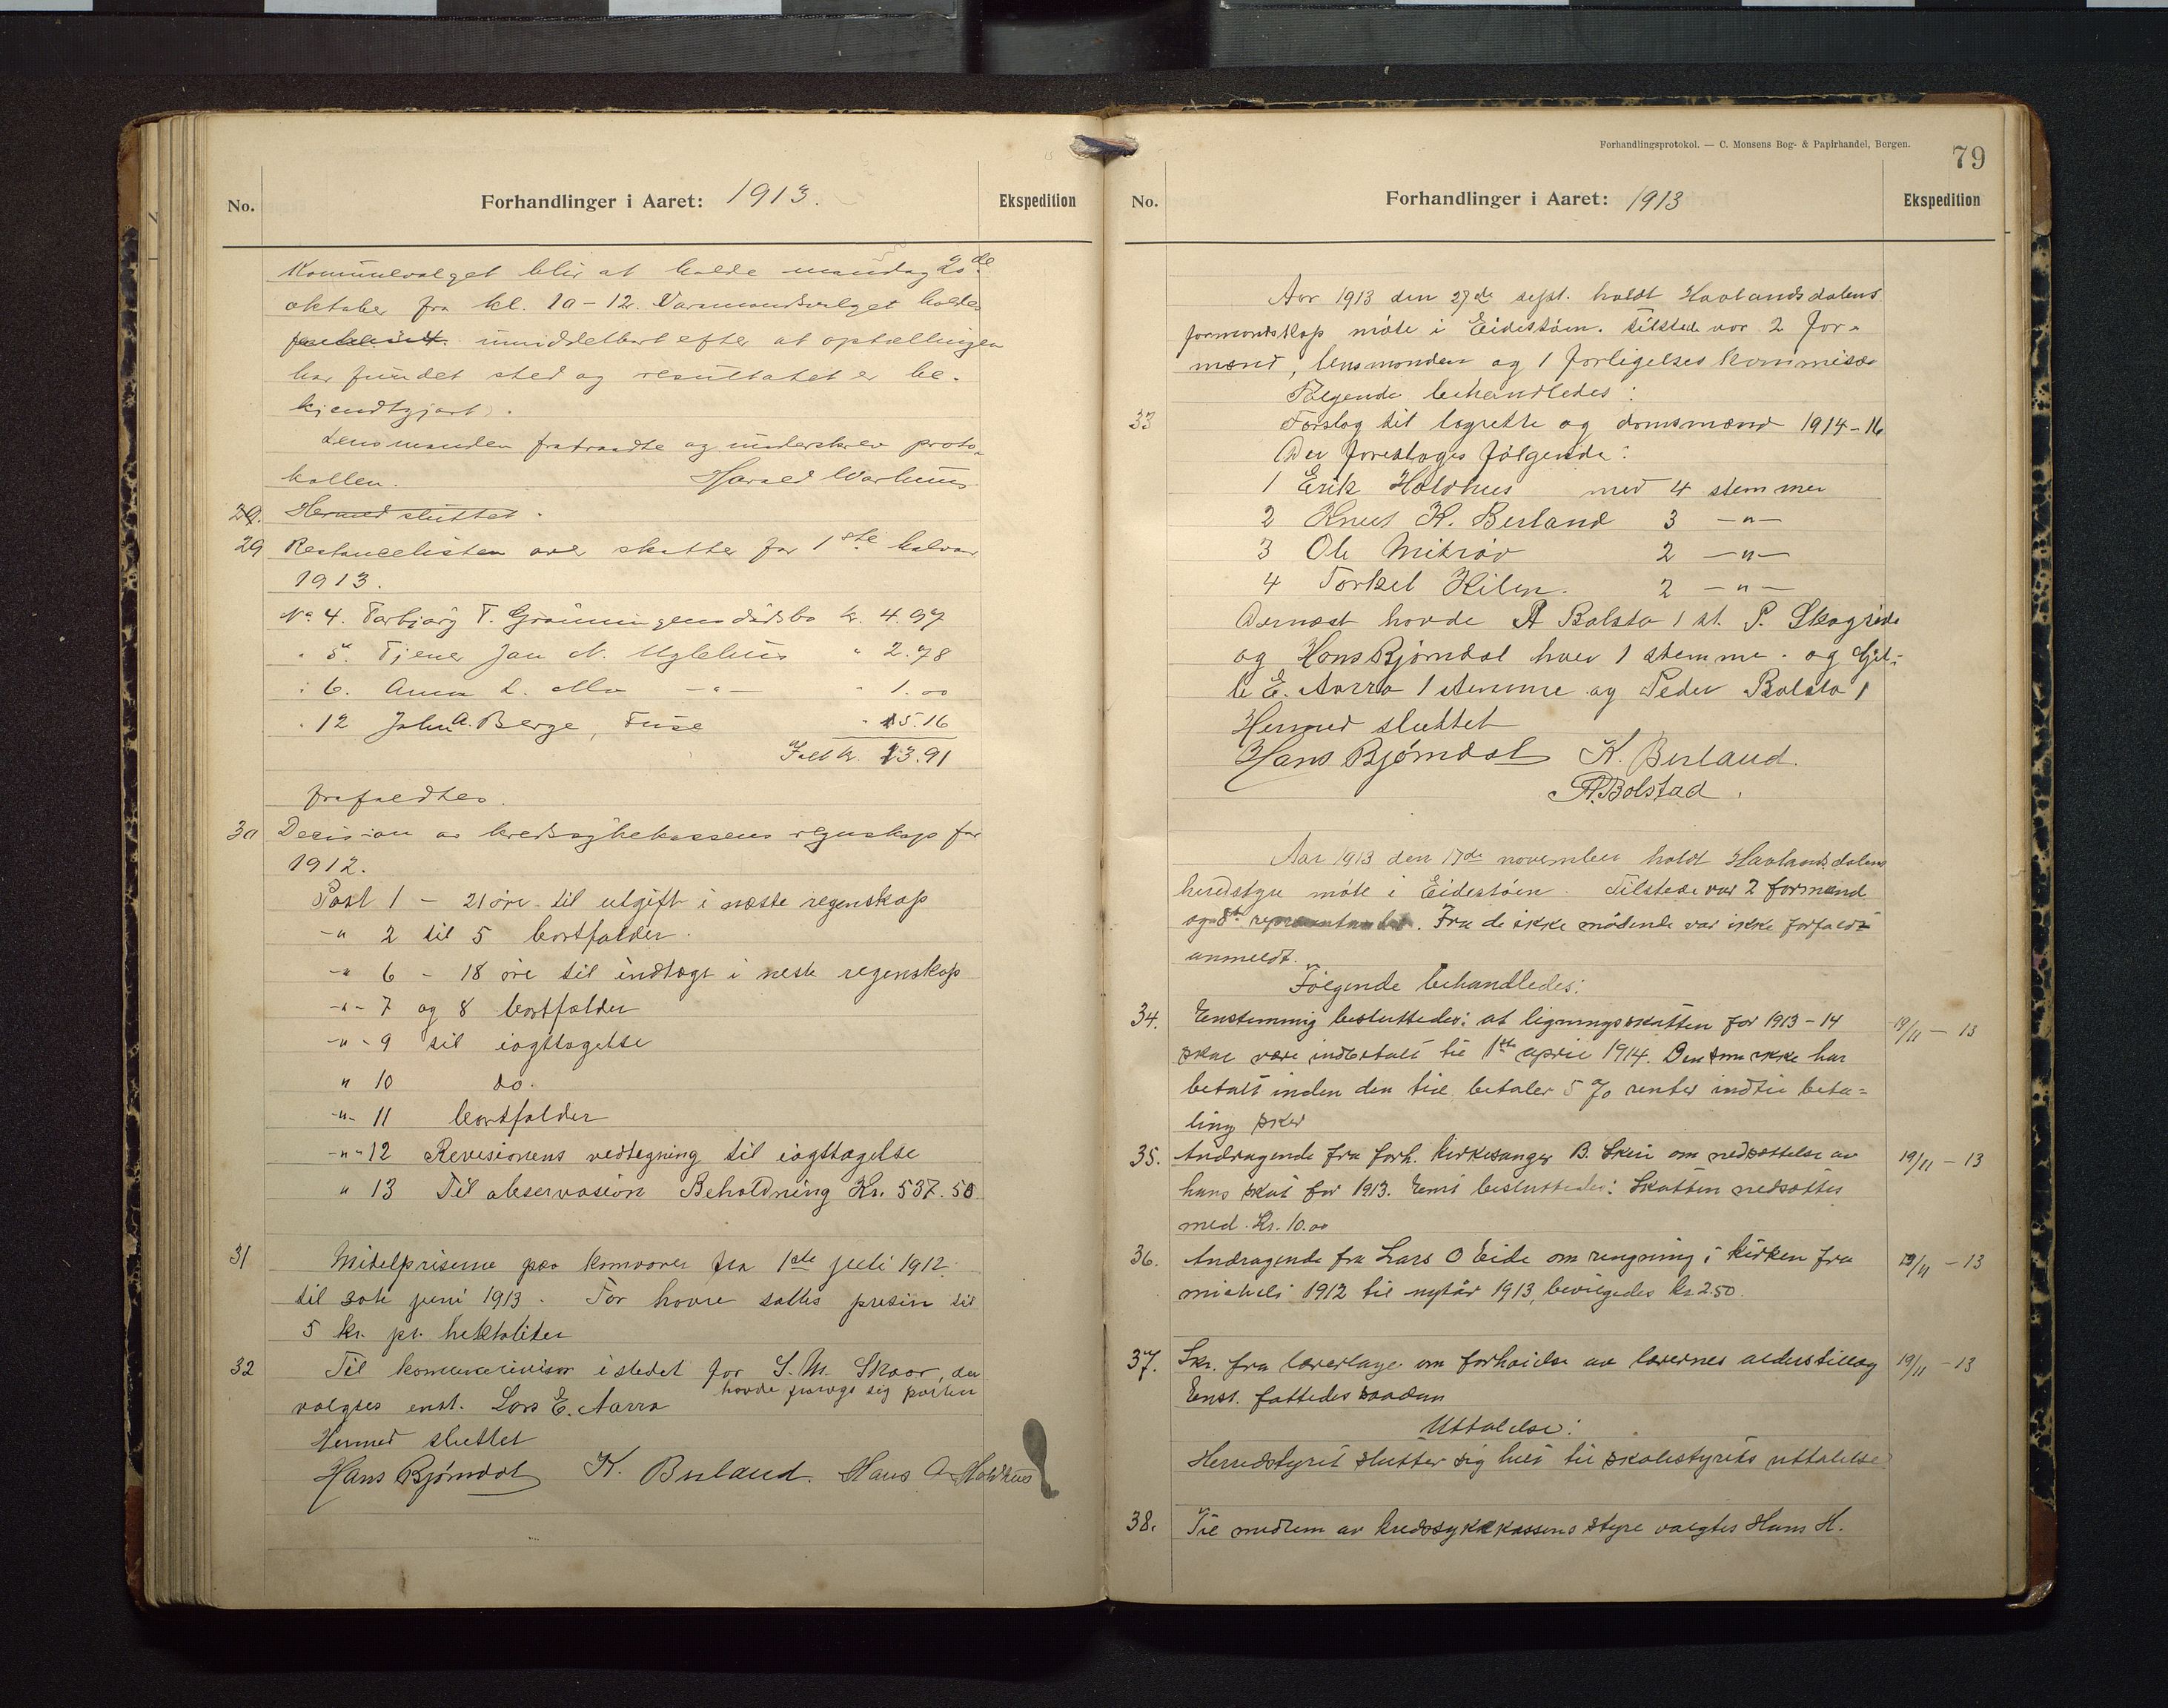 No.
Forhandlinger i Aaret: 1913.
Ekspedition
Kommunevalget blir at holde mandag 20de
oktober fra kl. 10-12. Varamandsvalget holdes
umiddelbart efter at optællingen
har fundet sted og resultatet er be-
kjendtgjort.
Lensmanden fratraadte og underskrev proto-
kollen. Harald Warhuus
29. Hermed sluttet.
29 Restancelisten over skatter for 1ste halvaar
1913.
No 4. Torbjørg T. Grønningens dødsbo kr. 4.97
" 5. Tjener Jan N. Uglehus " 2.78
" 6. Anna L. Mo -"- " 1.00
" 12 John A. Berge, Fuse " 15.16
Ialt kr. 23.91
frafaldtes.
30 Decision av kredssykekassens regnskap for
1912.
Post 1 - 21 øre til utgift i næste regenskap
-"- 2 til 5 bortfalder.
-"- 6 - 18 øre til indtægt i neste regenskap
-"- 7 og 8 bortfalder
-"- 9 til iagttagelse
" 10 do.
-"- 11 bortfalder
-"- 12 Revisionens vedtegning til iagttagelse
" 13 Til observasion Beholdning Kr. 537.50
31 Midelpriserne paa kornvarer fra 1ste juli 1912
til 30te juni 1913. For havre sattes prisin til
5 kr. pr. hektoliter
32 Til komunerevisor istedet for S. M. Skaar, der
havde frasagt sig posten
valgtes enst. Lars E. Aarra
Hermed sluttet
Hans Bjørndal K. Berland. Hans A. Holdhus
Forhandlingsprotokol. — C. Monsens Bog- & Papirhandel, Bergen.
79
No.
Forhandlinger i Aaret: 1913
Ekspedition
Aar 1913 den 27de sept. holdt Haalandsdalens
formandskap møte i Eidestøen. Tilstede var 2 for-
mænd, lensmanden og 1 forligelses kommisær
Følgende behandledes:
33 Forslag til lagrette og domsmænd 1914-16
Der foreslages følgende:
1 Erik Holdhus med 4 stemmer
2 Knut K. Berland 3 -"-
3 Ole Mikrøv 2 -"-
4 Torkel Kilen. 2 -"-
Dernæst havde A Bolsta 1 st. P. Skogseide
og Hans Bjørndal hver 1 stemme. og Gjel-
le E. Aarra 1 stemme og Peder Bolsta 1
Hermed sluttet
Hans Bjørndal K. Berland.
A. Bolstad.
Aar 1913 den 17de november holdt Haalandsdalens
heredstyr møte i Eidestøen. Tilstede var 2 formænd
og 8 . Fra de ikke mødende var ikke forfald
anmeldt.
Følgende behandledes:
34. Enstemmig besluttedes: at ligningsskatten for 1913-14 19/11 - 13
skal være indbetalt til 1ste april 1914. Den som ikke har
betalt inden den tid, betaler 5 % renter indtil beta=
ling sker
35. Andragende fra forh. kirkesanger B. Skei om nedsættelse av 19/11 - 13
hans skat for 1913. Enst besluttedes: Skatten nedsættes
med. Kr. 10.00
36. Andragende fra Lars O Eide om rengning i kirken fra 19/11 - 13
micheli 1912 til nytår 1913, bevilgedes kr 2.50.
37. Skr. fra lærerlage om forhøielse av lærernes alderstillæg 19/11 - 13
Enst. fattedes saadan
Uttalelse:
Herredstyret slutter sig helt til skolestyrets uttalelse.
38. Til medlem av kredssykekassens styre valgtes Hans H.